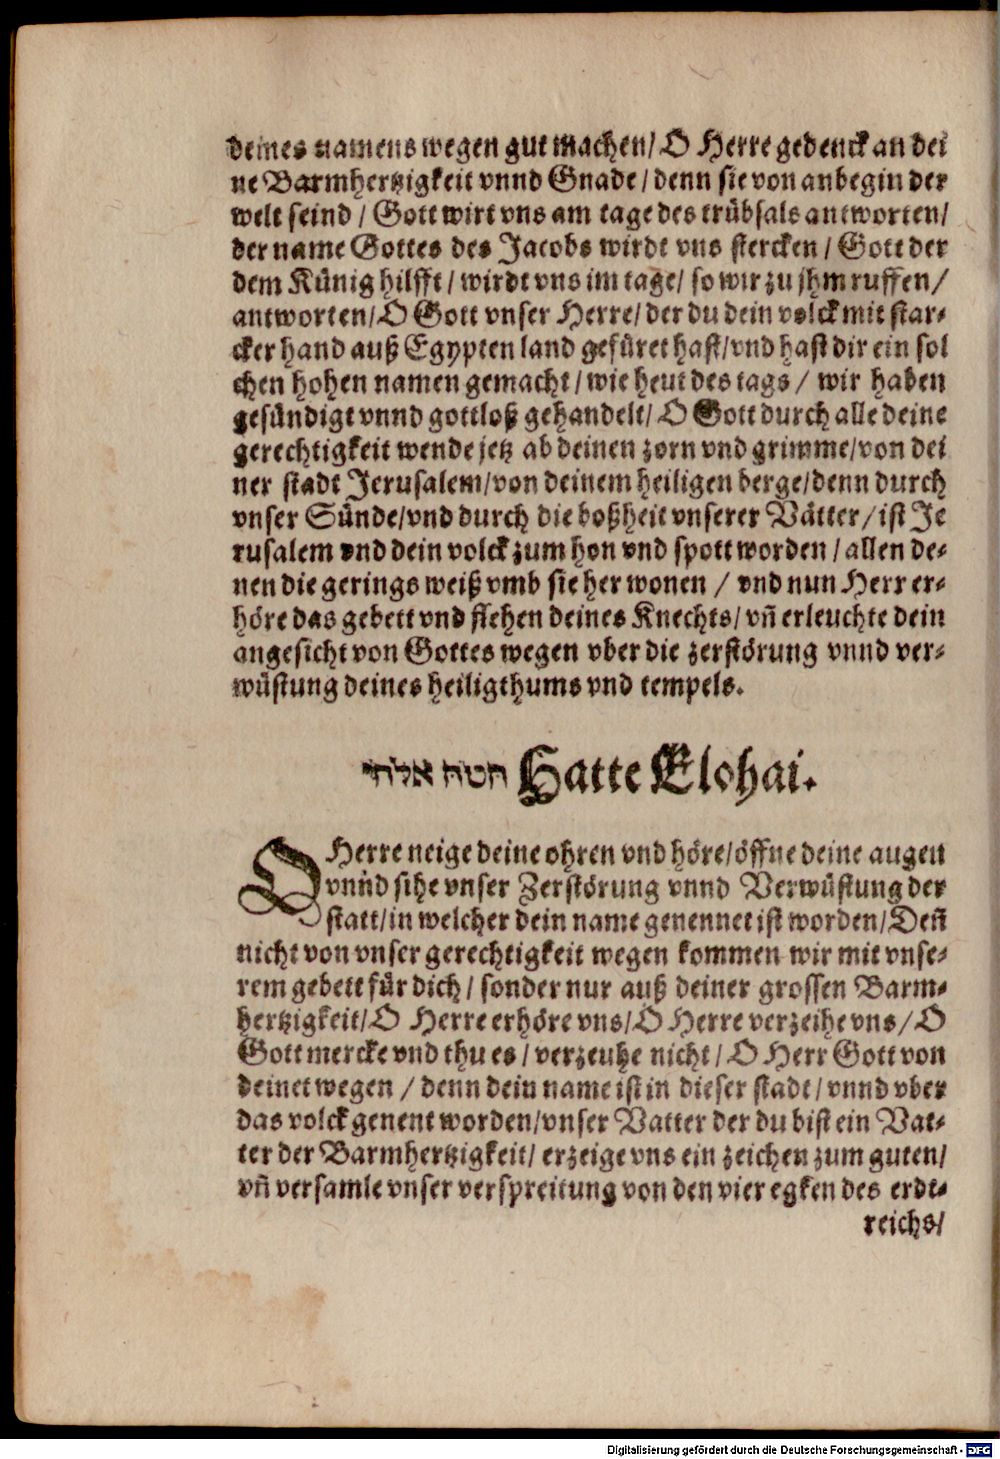 deines namens wegen gut machen/ O Herre gedenck an dei
ne Barmhertzigkeit vnnd Gnade/ denn sie von anbegin der
welt seind/ Gott wirt vns am tage des trübsals antworten/
der name Gottes des Jacobs wirdt vns stercken/ Gott der
dem Künig hilfft/ wirdt vns im tage/ so wir zu jhm ruffen/
antworten/ O Gott vnser Herre/ der du dein volck mit star-
cker hand auß Egypten land gefüret hast/ vnd hast dir ein sol
chen hohen namen gemacht/ wie heut des tags/ wir haben
gesündigt vnnd gottloß gehandelt/ O Gott durch alle deine
gerechtigkeit wende jetz ab deinen zorn vnd grimme/ von dei
ner stadt Jerusalem/ von deinem heiligen berge/ denn durch
vnser Sünde/ vnd durch die boßheit vnserer Vätter/ ist Je
rusalem vnd dein volck zum hon vnd spott worden/ allen de-
nen die gerings weiß vmb sie her wonen/ vnd nun Herr er-
höre das gebett vnd flehen deines Knechts/ vñ erleuchte dein
angesicht von Gottes wegen vber die zerstörung vnnd ver-
wüstung deines heiligthums vnd tempels.
הטה אלהי Hatte Elohai.
O Herre neige deine ohren vnd höre/ öffne deine augen
vnnd sihe vnser Zerstörung vnnd Verwüstung der
statt/ in welcher dein name genennet ist worden/ Deñ
nicht von vnser gerechtigkeit wegen kommen wir mit vnse-
rem gebett für dich/ sonder nur auß deiner grossen Barm-
hertzigkeit/ O Herre erhöre vns/ O Herre verzeihe vns/ O
Gott mercke vnd thu es/ verzeuhe nicht/ O Herr Gott von
deinet wegen/ denn dein name ist in dieser stadt/ vnnd vber
das volck genent worden/ vnser Vatter der du bist ein Vat-
ter der Barmhertzigkeit/ erzeige vns ein zeichen zum guten/
vñ versamle vnser verspreitung von den vier egken des erdt-
reichs/
Digitalisierung gefördert durch die Deutsche Forschungsgemeinschaft - DFG